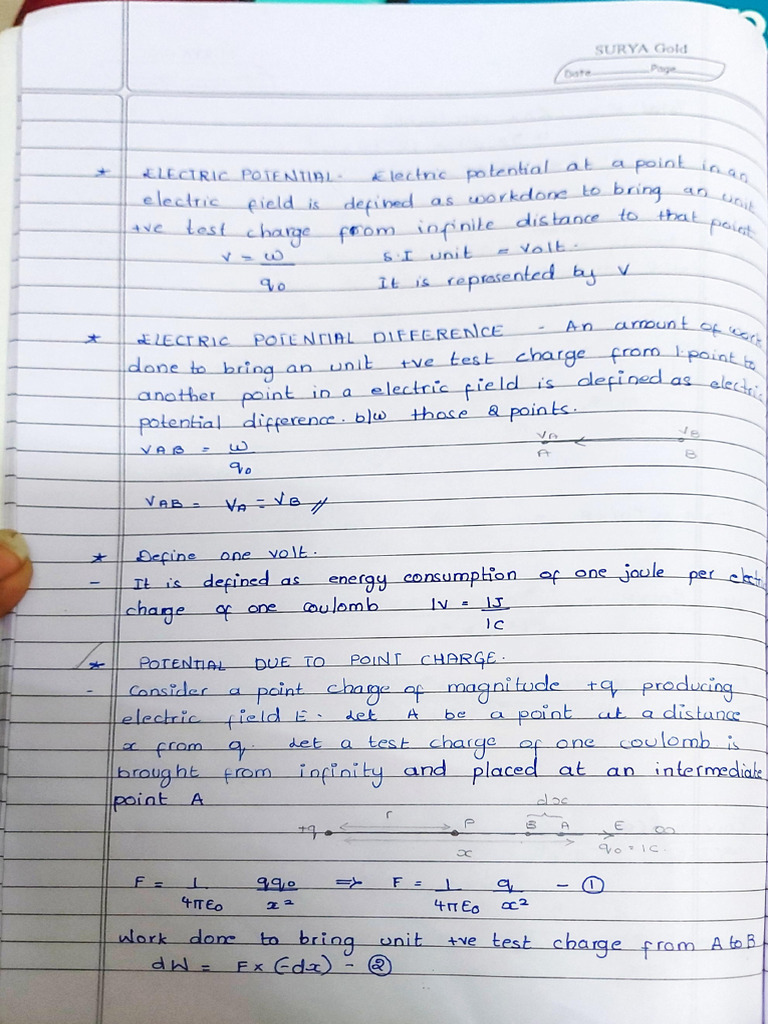 SURYA Gold
Date Page
* ELECTRIC POTENTIAL- Electric potential at a point in an
electric field is defined as workdone to bring an unit
+ve test charge from infinite distance to that point
V = W/q₀ S.I unit = volt.
It is represented by V
* ELECTRIC POTENTIAL DIFFERENCE - An amount of work
done to bring an unit +ve test charge from 1 point to
another point in a electric field is defined as electric
potential difference. b/w those 2 points.
VAB = W/q₀
VA VB
A B
VAB = VA = VB //
* Define one volt.
- It is defined as energy consumption of one joule per electri
charge of one coulomb 1V = 1J/1C
* POTENTIAL DUE TO POINT CHARGE.
- Consider a point charge of magnitude +q producing
electric field E. Let A be a point at a distance
x from q. Let a test charge of one coulomb is
brought from infinity and placed at an intermediate
point A
dx
+q r P B A E ∞
x q₀ = 1C.
F = 1/4πε₀ qq₀/x² ⇒ F = 1/4πε₀ q/x² - ①
Work done to bring unit +ve test charge from A to B
dW = F×(-dx) - ②